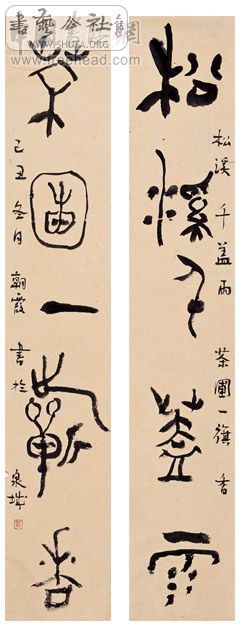 松溪千盖雨
松溪千盖雨 茶圃一旗香
茶圃一旗香
己丑冬日 朝霞 書於 泉城
書藝公社
WWW.SHUFA.ORG
www.freehead.com